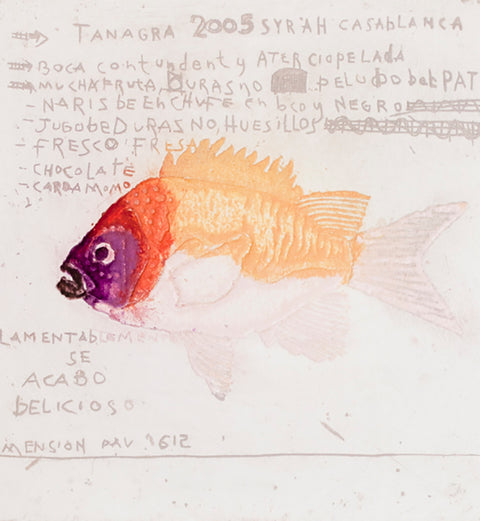 TANAGRA 2005 SYRAH CASABLANCA
BOCA contundenty ATERCIOPELADA
MUCHAFRUTA, DURASNO PELUDO DEL PAT
- NARIS DE EnCHUFE en bco y NEGRO
- JUGO DE DURASNO, HUESILLOS
- FRESCO FRESA
- CHOCOLATE
- CARDAMOMO
LAMENTABLEMENTE
SE
ACABO
DELICIOSO
MENSION PAV. 1612